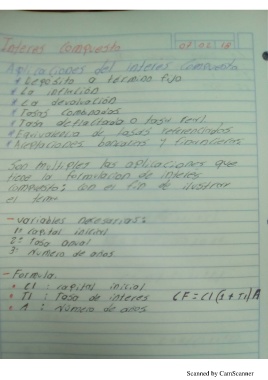 Interes Compuesto 07/02/18
Aplicaciones del interes compuesto
* Deposito a termino fijo
* La inflación
* La devaluación
* Tasas combinadas
* Tasa deflactada o tasa real
* Equivalencia de tasas referenciadas
* Aplicaciones bancarias y financieras
Son multiples las aplicaciones que
tiene la formulacion de interes
compuesto; con el fin de ilustrar
el tema
- Variables necesarias:
1º capital inicial
2º Tasa anual
3º Numero de años
- Formula.
• CI : capital inicial
• TI : Tasa de interes CF = CI (1 + TI) A
• A : Número de años
Scanned by CamScanner